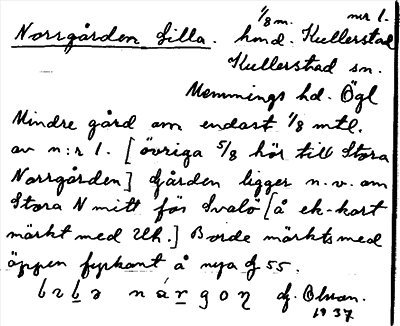 1/8 m. nr 1.
Norrgården Lilla. hmd. Kullerstad
Kullerstad sn.
Memmings hd. Ögl
Mindre gård om endast 1/8 mtl.
av n:r 1. [övriga 5/8 hör till Stora
Norrgården] Gården ligger n.v. om
Stora N mitt för Svalö [å ek-kart
märkt med Uh.] Borde märkts med
öppen fyrkant å nya G 55.
1937